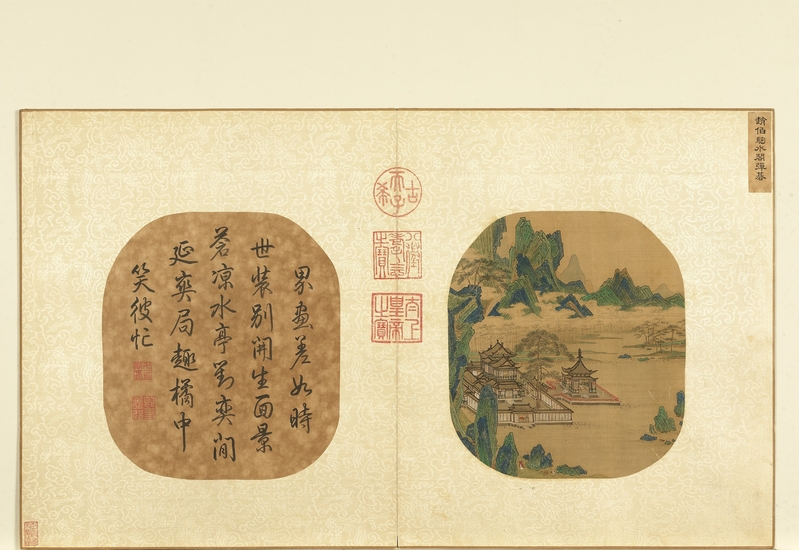 界畫差如時
世裝別開生面景
若涼水亭對奕閒
延奕局趣橘中
笑彼忙
古希天子
八徵耄念之寶
太上皇帝之寶